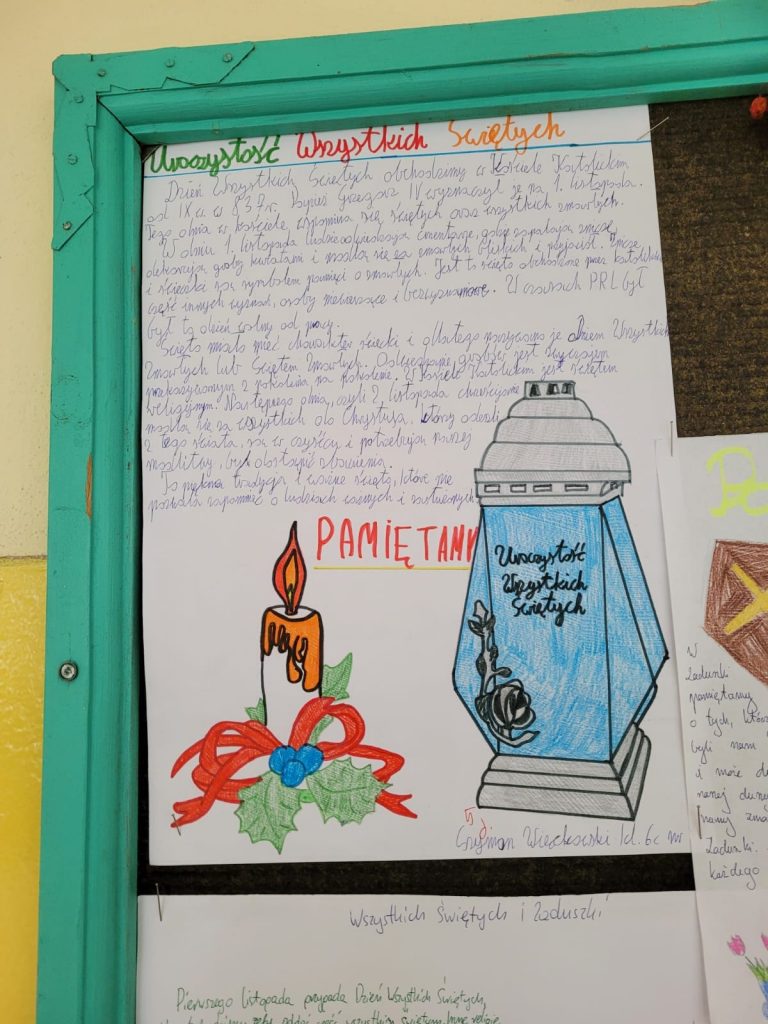 Uroczystość Wszystkich Świętych
Dzień Wszystkich Świętych obchodzimy w Kościele Katolickim
od IX w. w 837r. Papież Grzegorz IV wyznaczył je na 1. listopada.
Tego dnia w kościele wspomina się świętych oraz wszystkich zmarłych.
W dniu 1. listopada ludzie odwiedzają cmentarze, gdzie zapalają znicze,
dekorują groby kwiatami i modlą się za zmarłych bliskich i przyjaciół. Znicze
i świeczki są symbolem pamięci o zmarłych. Jest to święto obchodzone przez katolików
część innych wyznań, osoby niewierzące i bezwyznaniowe. W czasach PRL był
był to dzień wolny od pracy.
Święto miało mieć charakter świecki i dlatego nazywano je Dniem Wszystkich
Zmarłych lub Świętem Zmarłych. Odwiedzanie grobów jest zwyczajem
przekazywanym z pokolenia na pokolenie. W Kościele Katolickim jest świętem
religijnym. Następnego dnia, czyli 2. listopada chrześcijanie
modlą się za wszystkich do Chrystusa, którzy odeszli
z tego świata, są w czyśćcu i potrzebują naszej
modlitwy, by dostąpić zbawienia.
To piękna tradycja i ważne święto, które nie
pozwala zapomnieć o ludziach i
PAMIĘTAMY
Uroczystość
Wszystkich
Świętych
kl. 6c nr
W
Zaduszki
pamiętamy
o tych, którzy
byli nam
a może
naszej
Zaduszki.
każdego
Wszystkich Świętych i Zaduszki
Pierwszego listopada przypada Dzień Wszystkich Świętych,
żeby oddać cześć wszystkim świętym. Inne religie